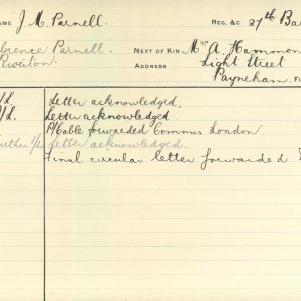 AME J. M. Parnell. REG. &c 27th Ba
orence Parnell. NEXT OF KIN Mrs A. Hammon
Riverton. ADDRESS Light Street
Payneham.
/d. Letter acknowledged.
/d. Letter acknowledged.
P/Cable forwarded Commes London
Letter acknowledged.
Final circular letter forwarded